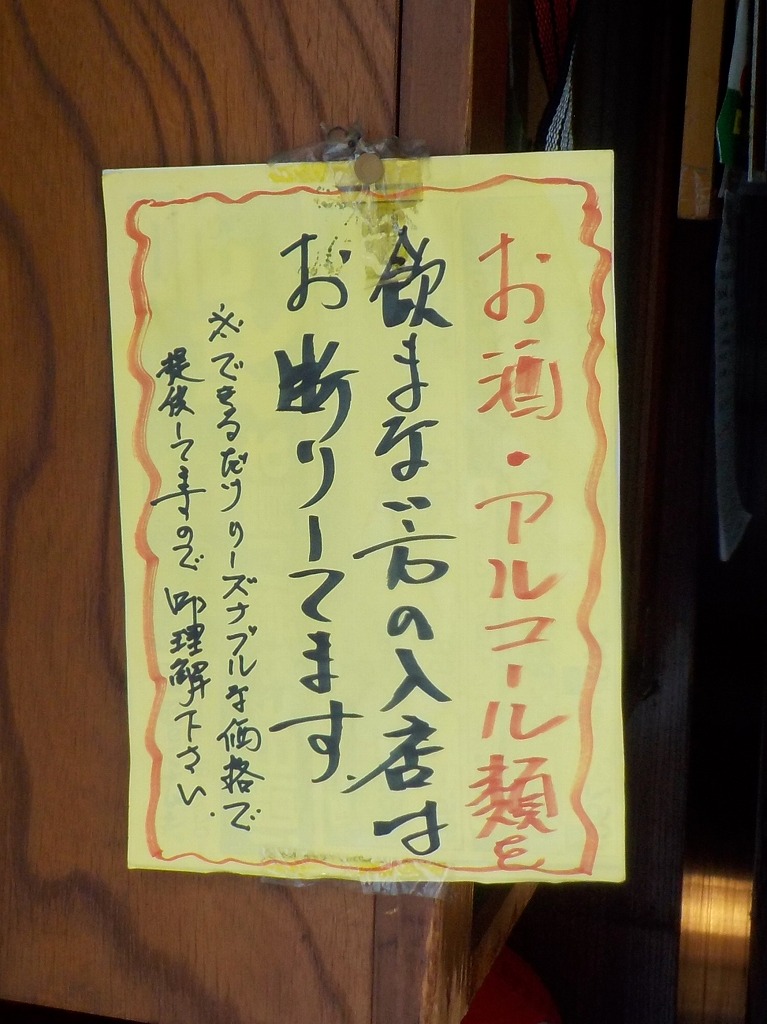 お酒・アルコール類を
飲まない方の入店は
お断りしてます。
※できるだけリーズナブルな価格で
提供してますので御理解下さい。